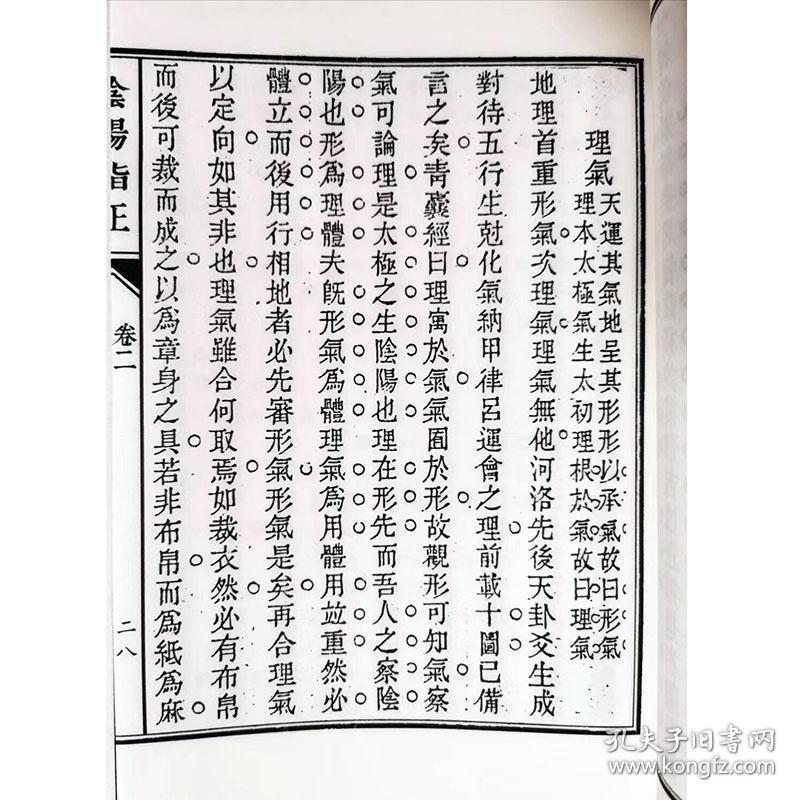 理氣
天運其氣地呈其形形以承氣故曰形氣
理本太極氣生太初理根於氣故曰理氣
地理首重形氣次理氣理氣無他河洛先後天卦爻生成
對待五行生尅化氣納甲律呂運會之理前載十圖已備
言之矣青囊經曰理寓於氣氣囿於形故觀形可知氣察
氣可論理是太極之生陰陽也理在形先而吾人之察陰
陽也形爲理體夫既形氣爲體理氣爲用體用並重然必
體立而後用行相地者必先審形氣形氣是矣再合理氣
以定向如其非也理氣雖合何取焉如裁衣然必有布帛
而後可裁而成之以爲章身之具若非布帛而爲紙爲麻
陰陽指正
卷二
二八
孔夫子旧书网
www.kongfz.com